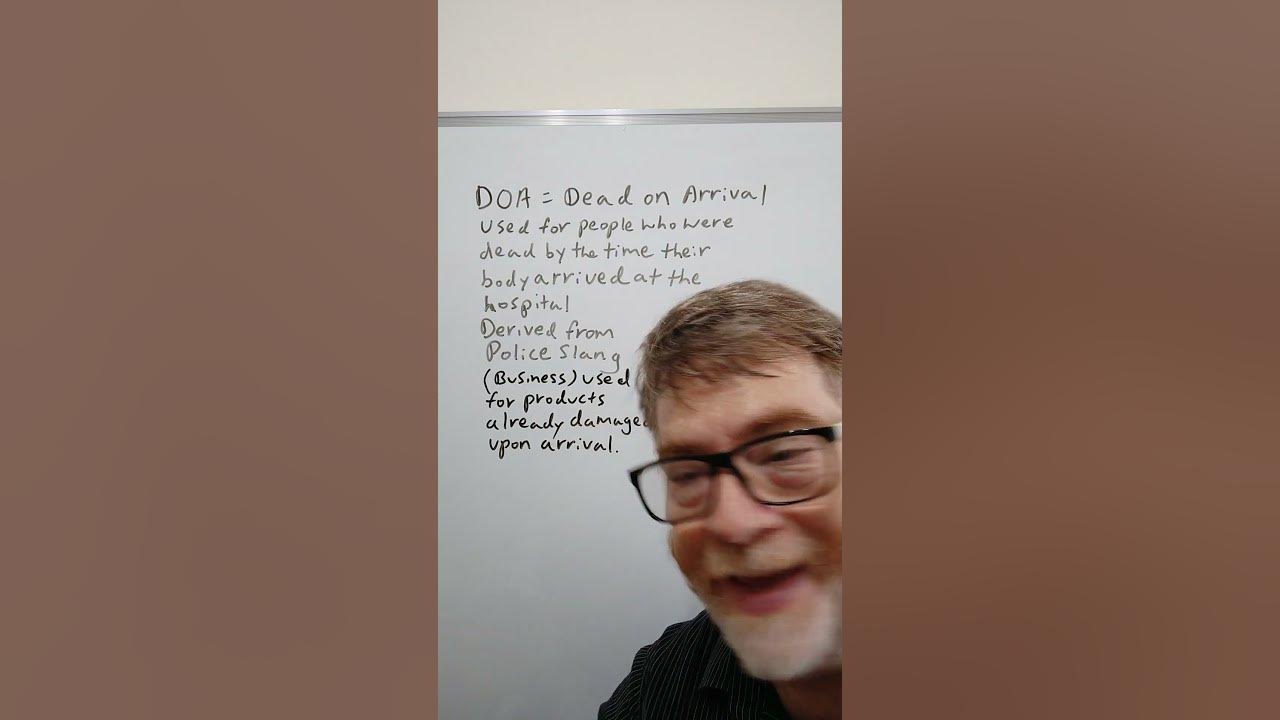 DOA = Dead on Arrival
used for people who were
dead by the time their
body arrived at the
hospital
Derived from
Police Slang
(Business) used
for products
already damaged
upon arrival.